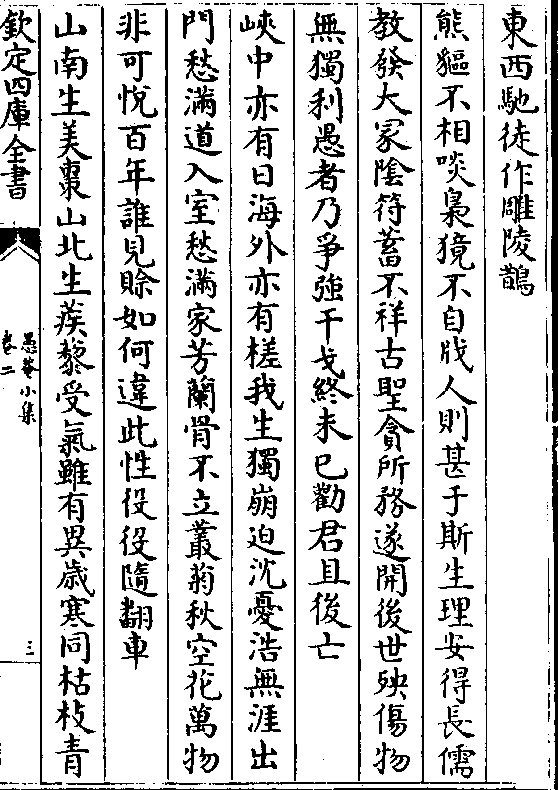 東西馳徒作雕陵鵲
熊貙不相啖梟獍不自戕人則甚于斯生理安得長儒
教發大冢陰符蓄不祥古聖貪所務遂開後世殃傷物
無獨利愚者乃爭強干戈終未已勸君且後亡
峽中亦有日海外亦有槎我生獨崩迫沈憂浩無涯出
門愁滿道入室愁滿家芳蘭骨不立叢菊秋空花萬物
非可悅百年誰見賒如何違此性役役隨翻車
山南生美棗山北生蒺藜受氣雖有異歲寒同枯枝青
欽定四庫全書
愚菴小集
卷二
三